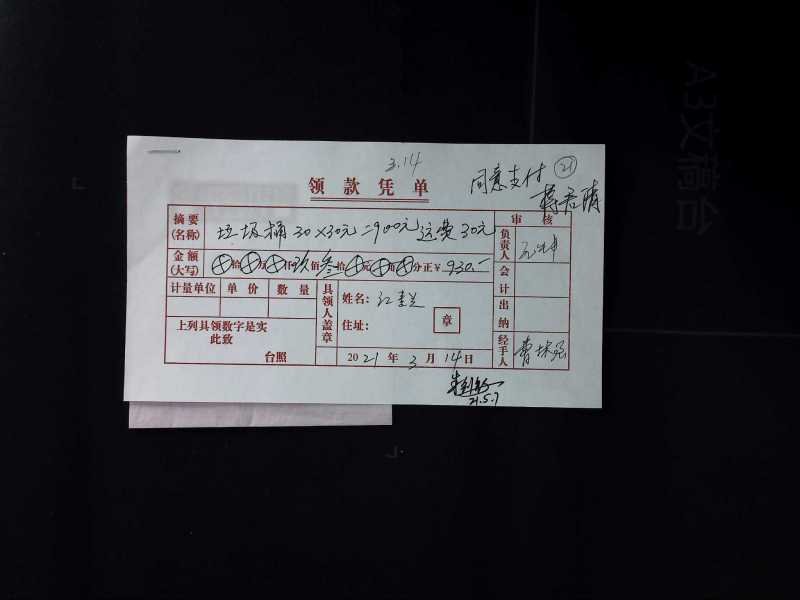 3.14
领款凭单
同意支付 21
摘要(名称) 垃圾桶 30×30元=900元 运费30元
审核
负责人
金额(大写) ⊗拾⊗万⊗仟玖佰叁拾⊗元⊗角⊗分正￥930.-
会计
计量单位 单价 数量
具领人盖章
姓名:
住址:
章
出纳
上列具领数字是实
此致
台照
2021年3月14日
经手人
21.5.7
A3文稿台